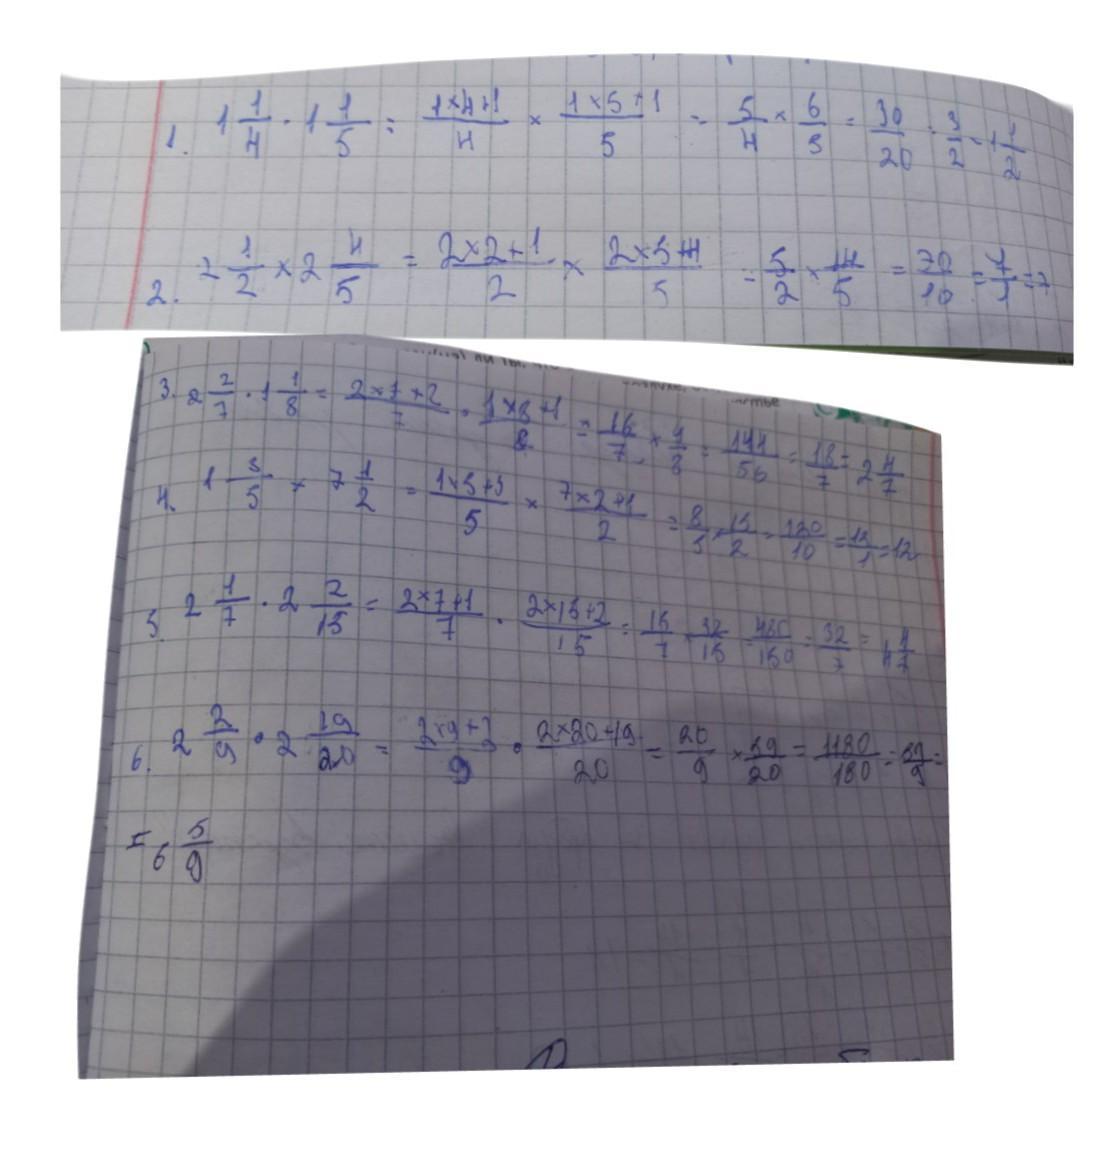 1. 1 1/4 · 1 1/5 = (1×4+1)/4 × (1×5+1)/5 = 5/4 × 6/5 = 30/20 · 3/2 = 1 1/2
2. 2 1/2 × 2 4/5 = (2×2+1)/2 × (2×5+4)/5 = 5/2 × 14/5 = 70/10 = 7/1 = 7
3. 2 2/7 · 1 1/8 = (2×7+2)/7 · (1×8+1)/8 = 16/7 × 9/8 = 144/56 = 18/7 = 2 4/7
4. 1 3/5 × 7 1/2 = (1×5+3)/5 × (7×2+1)/2 = 8/5 · 15/2 = 120/10 = 12/1 = 12
5. 2 1/7 · 2 2/15 = (2×7+1)/7 · (2×15+2)/15 = 15/7 × 32/15 = 480/150 = 32/7 = 4 4/7
6. 2 2/9 · 2 19/20 = (2×9+2)/9 · (2×20+19)/20 = 20/9 × 59/20 = 1180/180 = 59/9 =
= 6 5/9